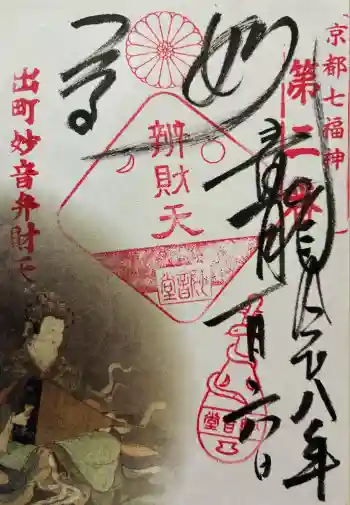 京都七福神
第二番
二十八年
妙
一月六日
辨財天
妙音堂
出町妙音弁財天